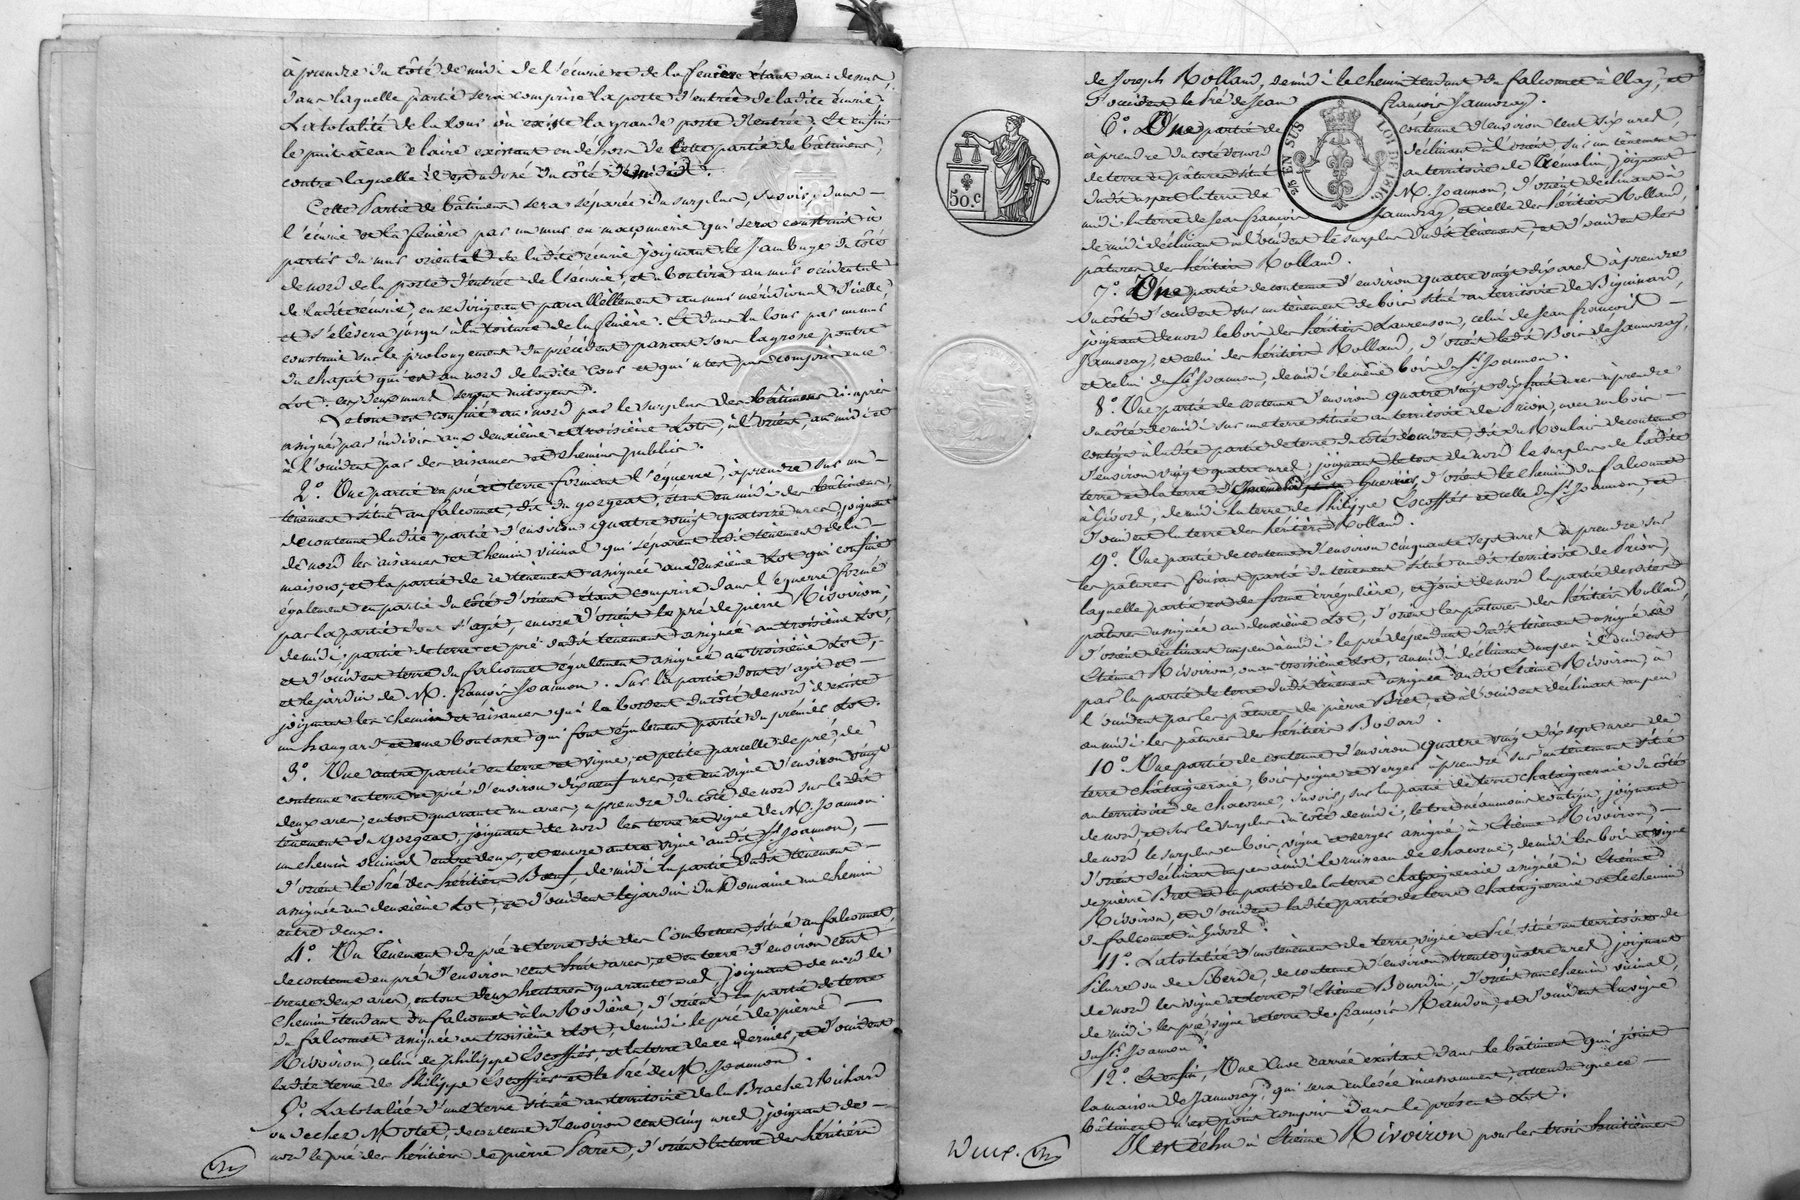 à prendre du côté de midi de l'écurie et de la fenière étant au dessus,
dans laquelle partie sera comprise la porte d'entrée de ladite écurie;
La totalité de la cour où existe la grande porte d'entrée; Et enfin
le puit à eau claire existant en dehors de cette partie de bâtimens,
contre laquelle il est adossé du côté de midi.
Cette Partie de bâtimens sera séparée du surplus, savoir: dans
l'écurie et la fenière par un mur en maçonnerie qui sera construit à
partir du mur oriental de ladite écurie joignant le Jambage du côté
de nord de la porte d'entrée de l'écurie, et aboutira au mur occidental
de ladite écurie, en se dirigeant parallèlement au mur méridional d'icelle
et s'élèvera jusqu'à la toiture de la fenière. Et dans la cour par un mur
construit sur le prolongement du précédent passant sous la grosse poutre
du chapit qui est au nord de ladite Cour et qui n'est pas comprise au ce
Lot. ces deux murs seront mitoyens.
Le tout est confiné au nord par le surplus des bâtimens ci-après
assignés par indivis aux deuxième et troisième Lots, à l'orient, au midi et
à l'occident par des aisances et chemins publics.
2.° Une partie en pré et terre formant l'équerre, à prendre sur un
tènement situé au falconnet, dit du gorgeat, étant en midi des bâtimens,
de contenue ladite partie d'environ quatre vingt quatorze ares, joignant
de nord les aisances et chemin vicinal qui séparent ledit tènement de la
maison, et la partie de ce tènement assignée au deuxième Lot qui confine
également en partie du côté d'orient étant comprise dans l'équerre formé
par la partie dont s'agit, encore d'orient le pré de pierre Rivoiron,
de midi partie de terre et pré dudit tènement assignée au troisième Lot,
et d'occident terre du falconnet également assignée au troisième Lot,
et le jardin de M. françois Joannon. Sur la partie dont s'agit et
joignant les chemin et aisances qui la bordent du côté de nord il existe
un hangard et une boutasse qui font également partie du premier Lot.
3.° Une autre partie en terre et vigne, et petite parcelle de pré, de
contenue en terre et pré d'environ dix neuf ares, et en vigne d'environ vingt
deux ares, en tout quarante un ares, à prendre du côté de nord sur le dit
tènement du gorgeat, joignant de nord les terre et vigne de M. Joannon
un chemin vicinal entre deux, et encore autre vigne audit Sr. Joannon,
d'orient le Pré des héritiers Bœuf, de midi la partie dudit tènement
assignée au deuxième Lot, et d'occident le jardin du Domaine un chemin
entre deux.
4.° Un Tènement de pré et terre dit des Combettes, situé au falconnet,
de contenue en pré d'environ cent huit ares, et en terre d'environ cent
trente deux ares, en tout deux hectares quarante ares, joignant de nord le
chemin tendant du falconnet à la Rodière, d'orient la partie de terre
du falconnet assignée au troisième Lot, de midi le pré de pierre
Rivoiron, celui de philippe Escoffier, et la terre de ce dernier, et d'occident
ladite terre de Philippe Escoffier et le Pré de M. Joannon.
5.° La totalité d'une terre située au territoire de la Brache Richard
ou de chez Motet, de contenue d'environ cent cinq ares, joignant de
nord le pré des héritiers de pierre Poret, d'orient la terre des héritiers
de Joseph Rolland, de midi le chemin tendant du falconnet à May, et
d'occident le Pré de Jean françois Jamoray.
6.° Une partie de contenue d'environ cent dix ares,
à prendre du côté de nord déclinant à l'orient, sur un tènement
de terre et pature situé au territoire de Cremolin, joignant
M. Joannon, d'orient déclinant à
midi la terre de Jean françois Jamoray, et celle des héritiers Rolland,
de midi déclinant à l'occident le surplus dudit tènement, et d'occident les
pâtures des héritiers Rolland.
7.° Une partie de contenue d'environ quatre vingt dix ares à prendre
du côté d'occident sur un tènement de bois situé au territoire de
joignant de nord le bois des héritiers Laurenson, celui de Jean françois
Jamoray, et celui des héritiers Rolland, d'orient ledit Bois de Jamoray,
et celui du Sr. Joannon, de midi le même bois du Sr. Joannon.
8.° Une partie de contenue d'environ quatre vingt dix huit ares à prendre
du côté de midi sur une terre située au territoire de Prion, avec un bois
contigu à ladite partie de terre du côté d'occident, dit du Moulin de contenue
d'environ vingt quatre ares, joignant le tout de nord le surplus de ladite
terre et la terre d' Guerrier, d'orient le chemin du falconnet
à Givors, de midi la terre de Philippe Escoffier et celle du Sr. Joannon, et
d'occident la terre des héritiers Rolland.
9.° Une partie de contenue d'environ cinquante sept ares à prendre sur
les pâtures faisant partie du tènement situé audit territoire de Prion,
laquelle partie est de forme irrégulière, et joint de nord la partie desdites
pâtures assignée au deuxième Lot, d'orient les pâtures des héritiers Rolland,
d'orient déclinant un peu à midi le pré dépendant dudit tènement assigné à
Etienne Rivoiron, ou au troisième Lot, au midi déclinant un peu à l'occident
par la partie de terre dudit tènement assignée audit Etienne Rivoiron, à
l'occident par les pâtures de pierre Bret, et à l'occident déclinant un peu
au midi les pâtures des héritiers Bodard.
10.° Une partie de contenue d'environ quatre vingt dix sept ares de
terre chataigneraie, bois, vigne et verger à prendre sur un tènement situé
au territoire de chavorne, savoir, sur la partie de terre chataigneraie du côté
de nord et sur le surplus du côté de midi, le tout néanmoins contigu, joignant
de nord le surplus en bois, vigne et verger assigné à Etienne Rivoiron,
d'orient déclinant un peu à midi le ruisseau de chavorne, de midi les bois et vigne
de pierre Bret et la partie de la terre chataigneraie assignée à Etienne
Rivoiron, et d'occident ladite partie de terre chataigneraie et le chemin
du falconnet à Givors.
11.° La totalité d'un tènement de terre, vigne et Pré, situé au territoire de
Pilure ou de Siberde, de contenue d'environ trente quatre ares, joignant
de nord les vigne et terre d'Etienne Bourdin, d'orient un chemin vicinal,
de midi les pré, vigne et terre de françois Randon, et d'occident la vigne
du Sr. Joannon.
12.° Et enfin, Une Cuve carrée existant dans le bâtiment qui joint
la maison de Jamoray, qui sera enlevée incessamment, attendu que ce
bâtiment n'est point compris dans le présent Lot.
Il est échu à Etienne Rivoiron pour les trois huitièmes
50.c
EN SUS
LOI DE 1816.
Deux.